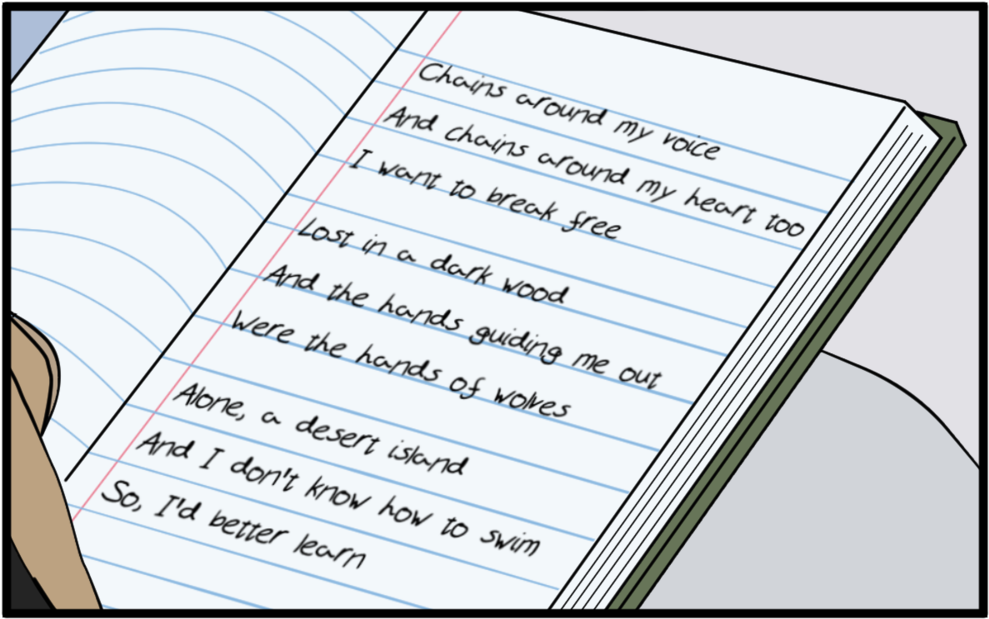 Chains around my voice
And chains around my heart too
I want to break free
Lost in a dark wood
And the hands guiding me out
Were the hands of wolves
Alone, a desert island
And I don't know how to swim
So, I'd better learn